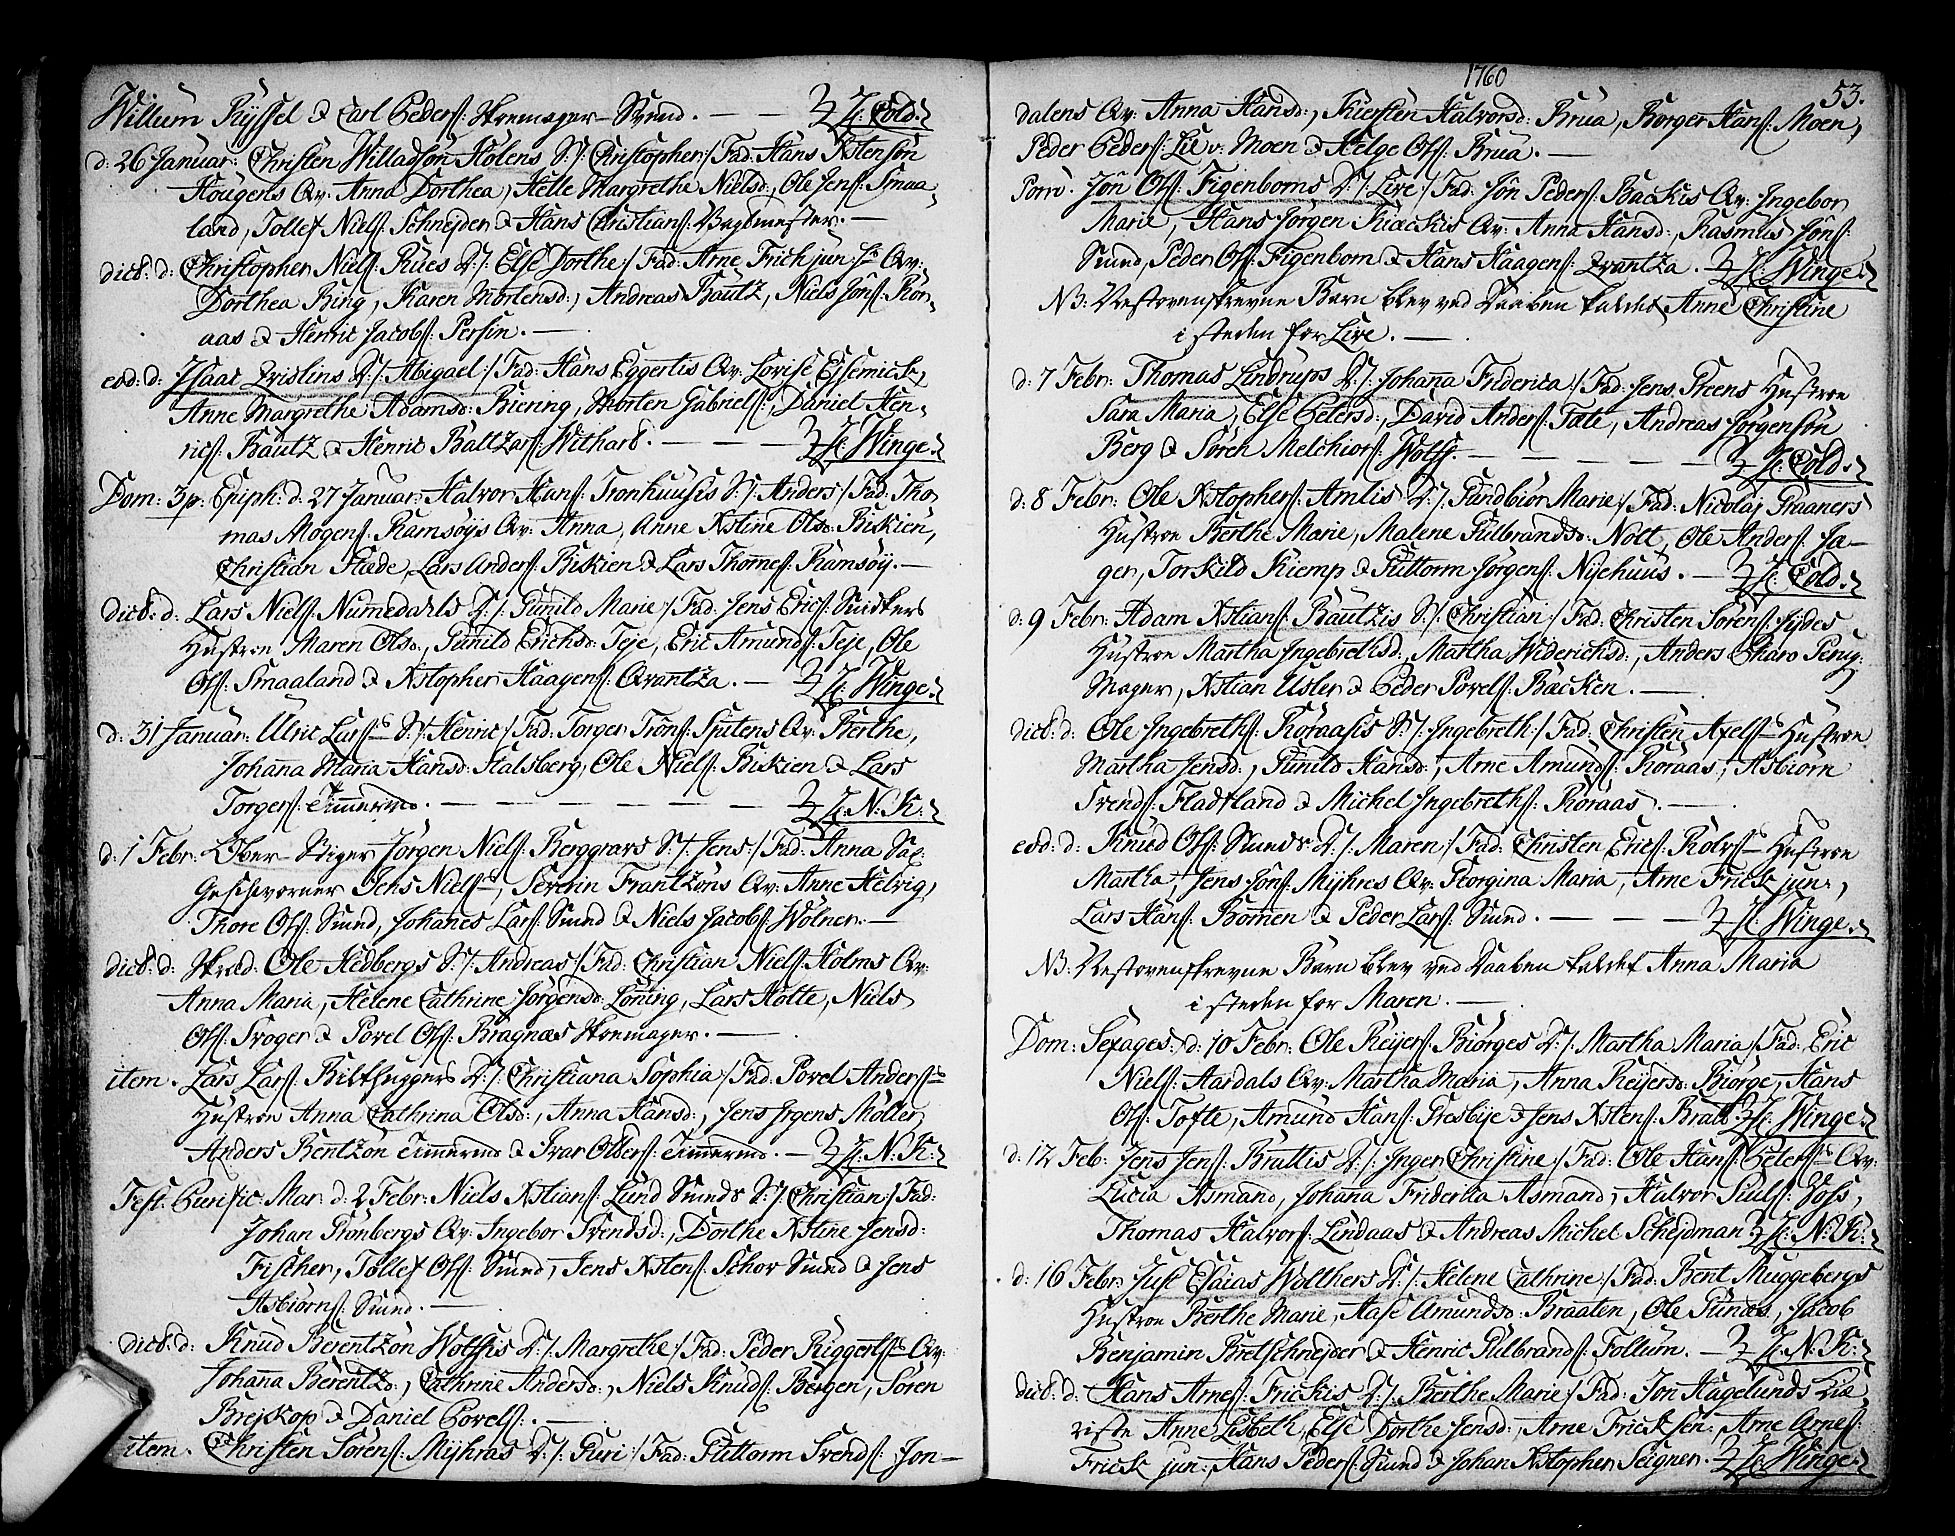 Willum Ryssel & Carl Peders: Skomager-Svend. — — H: Cold.
d: 26 Januar: Christen Willadsøn Holens S:/: Christopher:/ Fad: Hans Xstensøn
Haugens Qv: Anna Dorthea, Helle Margrethe Nielsd:, Ole Jens: Smaa-
land, Tollef Niels: Schnejder & Hans Christians: Bagemester. —
dict: d: Christopher Niels: Rues D:/: Else Dorthe:/ Fad: Arne Frich jun: Qv:
Dorthea Ring, Karen Mortensd:, Andreas Bautz, Niels Jöns: Rör-
aas & Henric Jacobs: Persin. —
eod: d: Isaac Qvislins D:/: Abigael:/ Fad: Hans Eggertis Qv: Lovise
Anne Margrethe Adamsd: Biering, Morten Gabriels:, Daniel Hen-
rics: Bautz & Henric Baltzars: Withard. — — — H: Winge.
Dom: 3 p: Epiph: d: 27 Januar: Halvor Hans: Tronhuusis S:/: Anders:/ Fad: Tho
mas Mogens: Ramsøys Qv: Anna, Anne Xstine Olsd: Biskien,
Christian Flæde, Lars Anders: Biskien & Lars Thomes: Ramsøy. —
dict: d: Lars Niels: Numedahls D:/: Gunild Marie:/ Fad: Jens Erics: Snidkers
Hustroe Maren Olsd:, Gunild Erichsd: Teje, Eric Amunds: Teje, Ole
Ols: Smaaland & Xstopher Haagens: Qvantza. — H: Winge.
d: 31 Januar: Ulric Lars: S:/: Henric:/ Fad: Torger Tröns: Sputens Qv: Berthe,
Johanna Maria Hansd: Halsberg, Ole Niels: Biskien & Lars
Torgers: Timermd. — — — — — — H: N: K:
d: 1 Febr: Ober-Stiger Jørgen Niels: Berggravs S:/: Jens:/ Fad: Anna Sal:
Geschworner Jens Niels:, Severin Frantzöns Qv: Anne Helvig,
Thore Ols: Smed, Johanes Lars: Smed & Niels Jacobs: Wölner. —
dict: d: Skræd: Ole Hedbergs S:/: Andreas:/ Fad: Christian Niels: Holms Qv:
Anna Maria, Helene Cathrine Jørgensd: Löning, Lars Holte, Niels
Ols: Troger & Povel Ols: Bragnæs Skomager. —
item. Lars Lars: Bilthuggers D:/: Christiana Sophia:/ Fad: Povel Anders:
Hustroe Anna Cathrina Olsd:, Anna Hansd:, Jens Jrgens Möller,
Anders Bentzön Timermd & Ivar Olders: Timermd. — H: N: K:
Fest: Purific: Mar: d: 2 Febr: Niels Xstians: Lund Smeds S:/: Christian:/ Fad:
Johan Cronbergs Qv: Ingebor Svendsd:, Dorthe Xstine Jensd:
Fischer, Tollef Ols: Smed, Jens Xstens: Schov Smed & Jens
Asbiörns: Smed. —
dict: d: Knud Berentzön Wolffis D:/: Margrethe:/ Fad: Peder Riggerts: Qv:
Johanna Berentzd:, Cathrine Andersd:, Niels Knuds: Bergen, Sören
Brejskop & Daniel Povels:. —
item. Christen Sörens: Myhras D:/: Guri:/ Fad: Guttorm Svends: Jon-
1760
53.
dalens Qv: Anna Hansd:, Kiersten Halvorsd: Brua, Borger Hans: Moen,
Peder Peders: Lie v: Moen & Helge Ols: Brua. —
Pom. Jön Ols: Figenboms D:/: Live:/ Fad: Jön Peders: Backis Qv: Ingebor
Marie, Hans Jörgen Kiackis Qv: Anna Hansd:, Rasmus Jöns:
Smed, Peder Ols: Figenbom & Hans Haagens: Qvantza. H: Winge.
NB: Næstovenskrevne Barn blev ved Daaben kaldet Anne Christine
i steden for Live. —
d: 7 Febr: Thomas Lindrups D:/: Johanna Friderica:/ Fad: Jens Preens Hustroe
Sara Maria, Else Petersd:, David Anders: Tote, Andreas Jörgensön
Berg & Sören Melchiors: Wolff. — — — — — H: Cold.
d: 8 Febr: Ole Xstophers: Amlis D:/: Gundbiör Marie:/ Fad: Nicolaj Praaners
Hustroe Berthe Marie, Malene Gulbrandsd: Nott, Ole Anders: Ja-
ger, Torskild Kiemp & Guttorm Jörgens: Nyehuus. — H: Cold.
d: 9 Febr: Adam Xstians: Bautzis S:/: Christian:/ Fad: Christen Sörens: Jydes
Hustroe Martha Ingebrethsd:, Martha Widerichsd:, Anders Pharo Perug:
Mager, Xstian Usler & Peder Povels: Backen. —
dict: d: Ole Ingebreths: Röraasis S:/: Ingebreth:/ Fad: Christen Axels: Hustroe
Martha Jensd:, Gunild Hansd:, Arne Amunds: Röraas, Asbiörn
Svends: Fladtland & Michel Ingebreths: Röraas. —
eod: d: Knud Ols: Smeds D:/: Maren:/ Fad: Christen Erics: Rolvs: Hustroe
Martha, Jens Jöns: Myhres Qv: Georgina Maria, Arne Frick jun:,
Lars Hans: Bömen & Peder Lars: Smed. — — — H: Winge.
NB: Næstovenskrevne Barn blev ved Daaben kaldet Anna Maria
i steden for Maren. —
Dom: Sexages: d: 10 Febr: Ole Reijers: Biörges D:/: Martha Maria:/ Fad: Eric
Niels: Aardals Qv: Martha Maria, Anna Reijersd: Biörge, Hans
Ols: Tofte, Amund Hans: Presbye & Jens Xstens: Bratt. H: Winge
d: 12 Feb: Jens Jens: Bruttis D:/: Inger Christine:/ Fad: Ole Hans: Qv:
Lucia Asmand, Johana Friderica Asmand, Halvor Pouls: Voss,
Thomas Halvors: Lindaas & Andreas Michel Schejdman H: N: K:
d: 16 Febr: Just Esaias Wolthers D:/: Helene Cathrine:/ Fad: Bent Muggebergs
Hustroe Berthe Marie, Aase Amundsd: Braaten, Ole Gunæs, Jacob
Benjamin Bretschnejder & Henric Gulbrands: Follum. — H: N: K:
dict: d: Hans Arnes: Frickis D:/: Berthe Marie:/ Fad: Jon Hagelunds Liæ
riste Anne Lisbeth, Else Dorthe Jensd:, Arne Frick sen:, Arne Arnes:
Frick jun:, Hans Peders: Smed & Johan Xstopher Seigner. H: Winge.